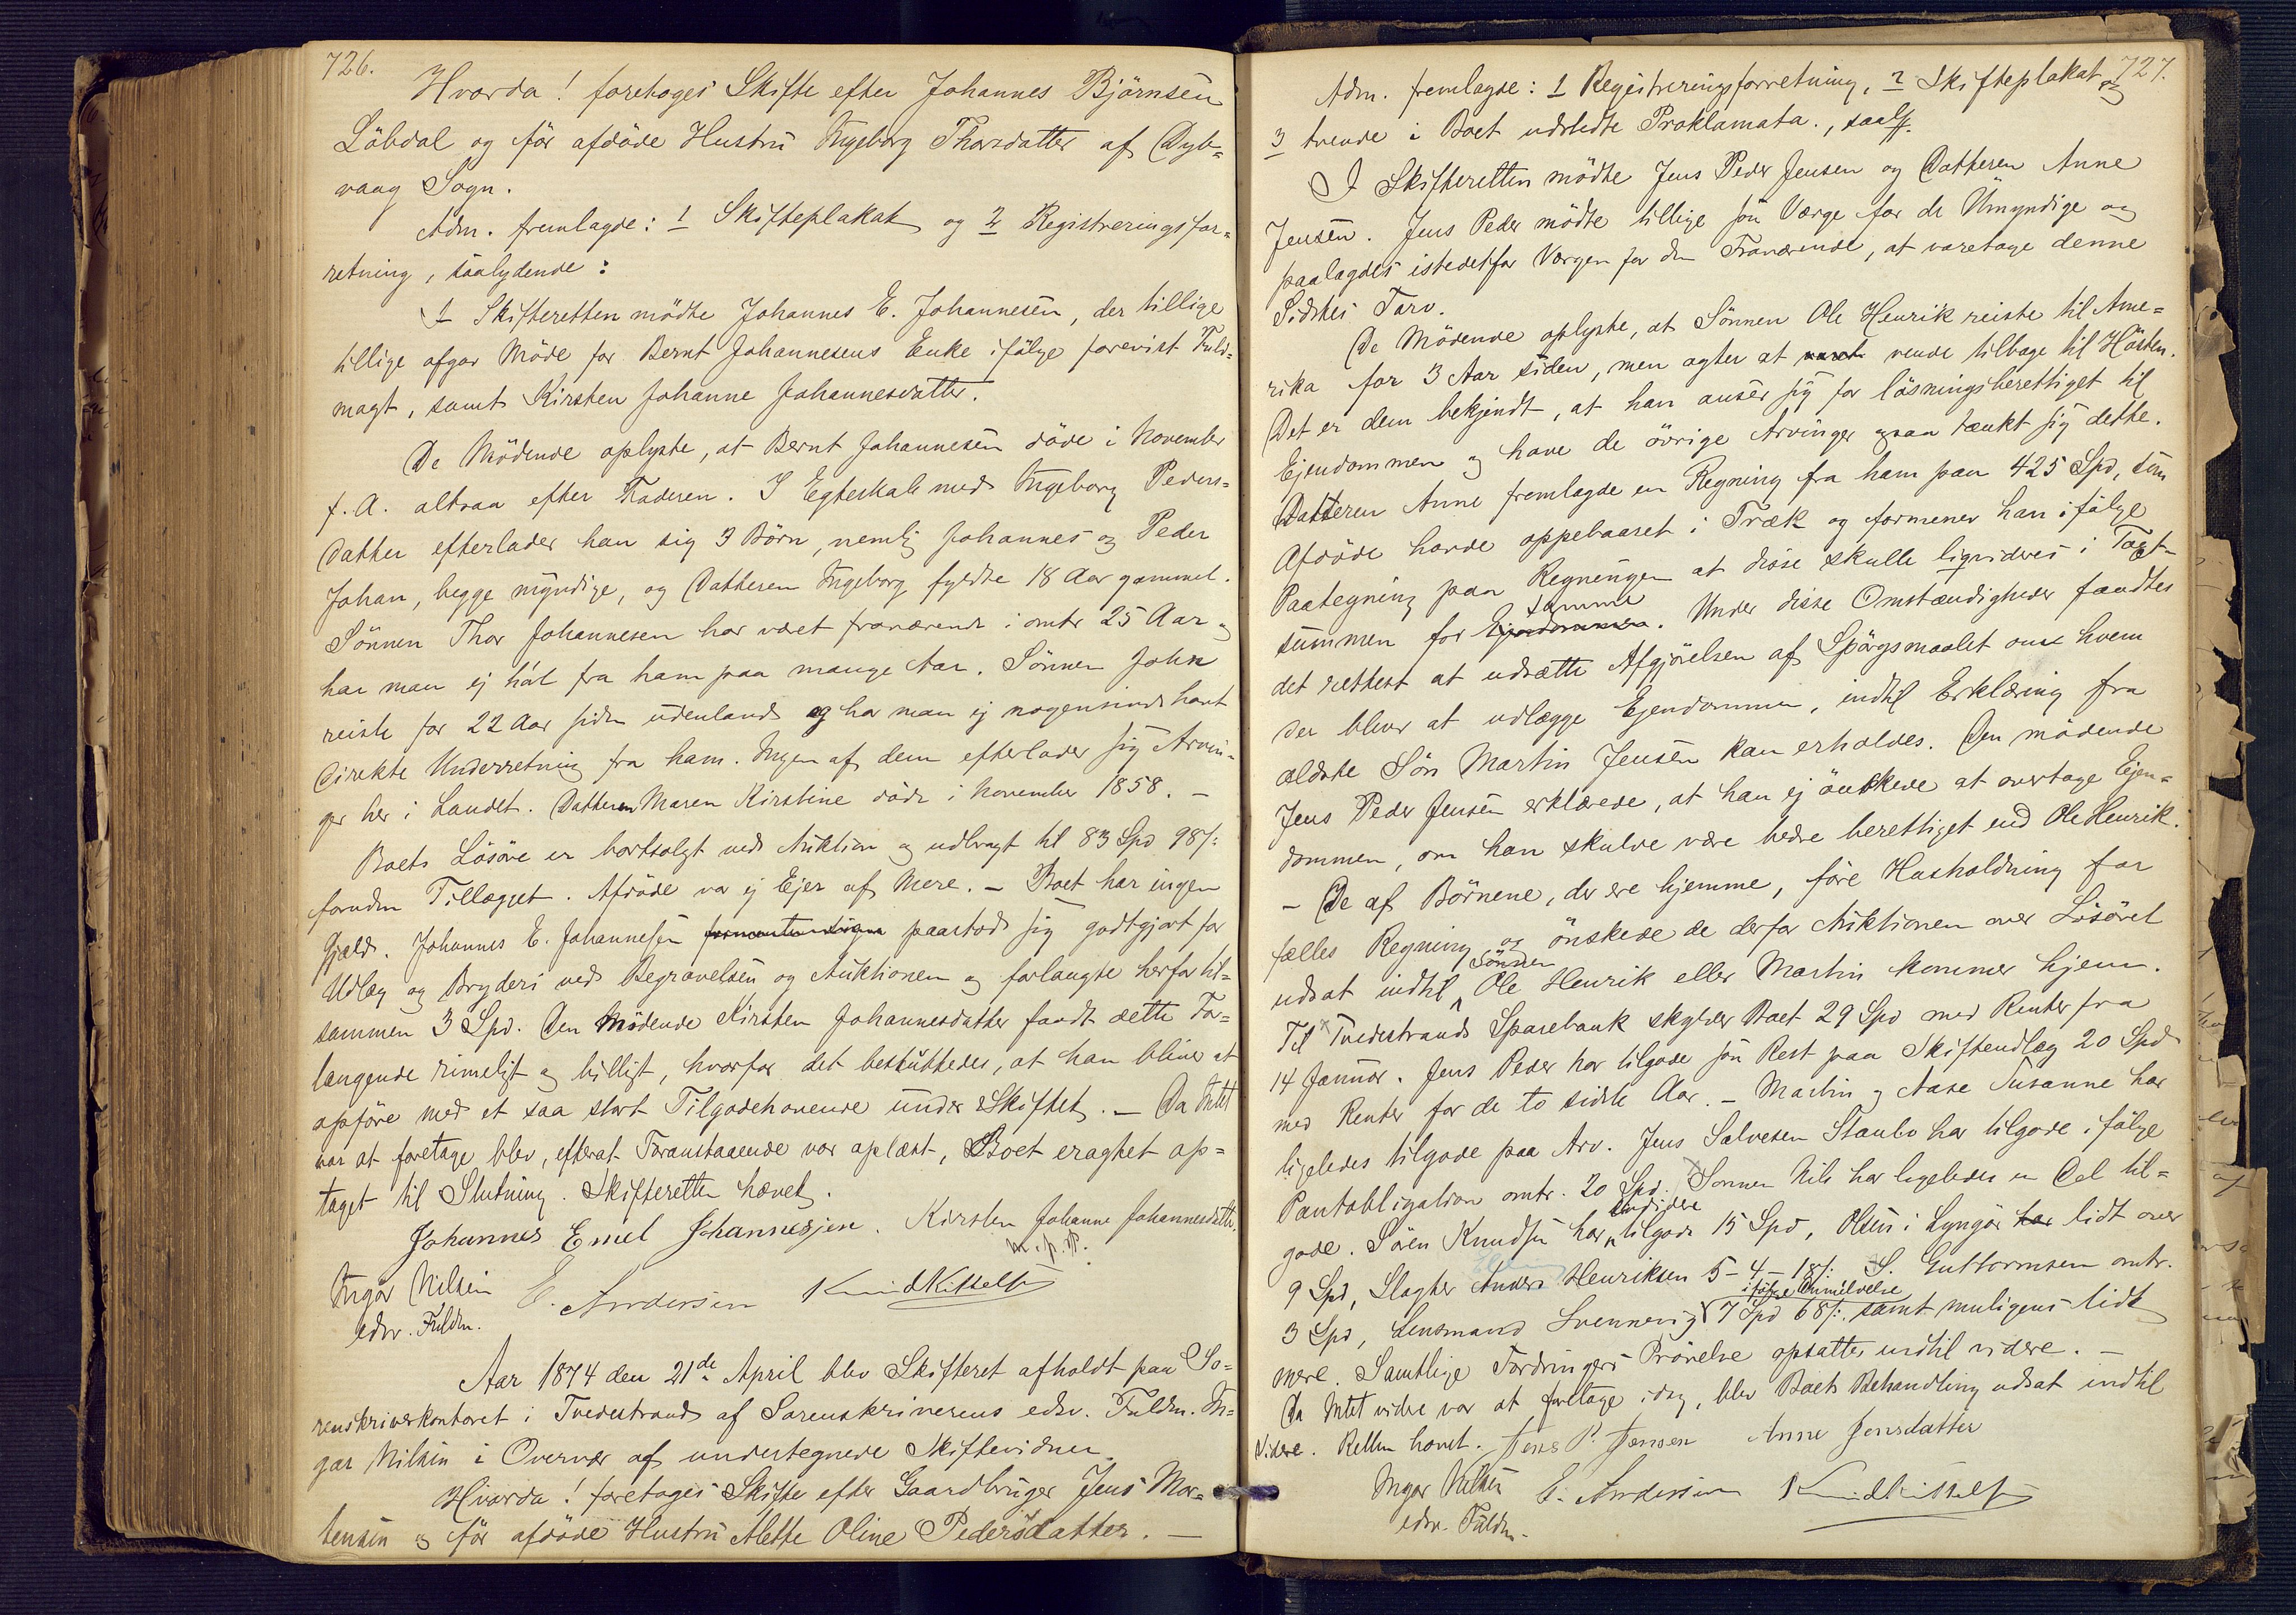 726.
Hvorda! foretoges Skifte efter Johannes Björnsen
Löbdal og för afdöde Hustru Ingeborg Thorsdatter af Dybe=
vaag Sogn.
Adm. fremlagde: 1 Skifteplakat og 2 Registreringsfor=
retning, saalydende:
I Skifteretten mödte Johannes E. Johannesen, der tillige
tillige afgav Möde for Bernt Johannesens Enke ifölge forevist Fuld=
magt, samt Kirsten Johanne Johannesdatter.
De Mödende oplyste, at Bernt Johannesen döde i November
f. A. altsaa efter Faderen. I Egteskab med Ingeborg Peders=
datter efterlader han sig 3 Börn, nemlig Johannes og Peder
Johan, begge myndige, og Datteren Ingeborg fyldte 18 Aar gammel.
Sönnen Thor Johannesen har været fraværende i omtr 25 Aar og
har man ej hört fra ham paa mange Aar. Sönnen John
reiste for 22 Aar siden udenlands og har man ej nogensinde havt
direkte Underretning fra ham. Ingen af dem efterlader sig Arvin=
ger her i Landet. Datteren Maren Kirstine döde i November 1858. –
Boets Lösöre er bortsolgt ved Auktion og udbragt til 83 Spd 98 ß:
foruden Tillægget. Afdöde var ej Ejer af Mere. – Boet har ingen
Gjæld. Johannes E. Johannesen paastod sig godtgjort for
Udlæg og Bryderi ved Begravelsen og Auktionen og forlangte herfor til=
sammen 3 Spd. Den Mödende Kirsten Johannesdatter fandt dette For=
langende rimeligt og billigt, hvorfor det besluttedes, at han bliver at
opföre med et saa stort Tilgodehavende under Skiftet. – Da Intet
var at foretage blev, efterat Foranstaaende var oplæst, Boet eragtet op=
taget til Slutning. Skifteretten hævet.
Johannes Emel Johannesjen. Kirsten Johanne Johannesdatter.
m. p. P.
Ingar Nilsen E. Andersen Knud Kittelsen
edsv. Fuldm.
Aar 1874 den 21de April blev Skifteret afholdt paa So=
renskriverkontoret i Tvedestrand af Sorenskriverens edsv. Fuldm. In=
gar Nilsen i Overvær af undertegnede Skiftevidner
Hvorda! foretoges Skifte efter Gaardbruger Jens Mor=
tensen og för afdöde Hustru Alette Oline Pedersdatter. –
727.
Adm. fremlagde: 1 Registreringsforretning, 2 Skifteplakat og
3 trende i Boet udstedte Proklamata., saal.
I Skifteretten mödte Jens Peder Jensen og Datteren Anne
Jensen. Jens Peder mödte tillige som Værge for de Umyndige og
paalagdes istedetfor Værgen for den Fraværende, at varetage denne
Sidstes Tarv.
De Mödende oplyste, at Sönnen Ole Henrik reiste til Ame=
rika for 3 Aar siden, men agter at vende tilbage til Hösten.
Det er dem bekjendt, at han anser sig for lösningsberettiget til
Ejendommen og have de övrige Arvinger ogsaa tænkt sig dette.
Datteren Anne fremlagde en Regning fra ham paa 425 Spd, som
Afdöde havde oppebaaret i Træk og formener han ifölge
Paategning paa Regningen at disse skulle liqvideres i Taxt-
summen for Ejendommen samme. Under disse Omstændigheder fandtes
det rettest at udsætte Afgjörelsen af Spörgsmaalet om hvem
der bliver at udlægge Ejendommen, indtil Erklæring fra
ældste Sön Martin Jensen kan erholdes. Den mödende
Jens Peder Jensen erklærede, at han ej önskede at overtage Ejen=
dommen, om han skulde være bedre berettiget end Ole Henrik.
– De af Börnene, der ere hjemme, före Husholdning for
fælles Regning og önskede de derfor Auktionen over Lösöret
udsat indtil Sönnen Ole Henrik eller Martin kommer hjem.
Til Tvedestrands Sparebank skylder Boet 29 Spd med Renter fra
14 Januar. Jens Peder har tilgode som Rest paa Skifteudlæg 20 Spd
med Renter for de to sidste Aar. – Martin og Aase Susanne har
ligeledes tilgode paa Arv. Jens Salvesen Staubo har tilgode ifölge
Pantobligation omtr. 20 Spd. Sönnen Nils har ligeledes en Del til=
gode. Sören Knudsen har endvidere tilgode 15 Spd, Olsen i Lyngör har lidt over
9 Spd, Slagter Anders Henriksen 5 – 4 – 18 ß: S. Guttormsen omtr.
3 Spd, Lensmand Svennevig ifölge Anmeldelse 7 Spd 68 ß:, samt muligens lidt
mere. Samtlige Fordringers Prövelse opsattes indtil videre. –
Da Intet videre var at foretage idag, blev Boets Behandling udsat indtil
videre. Retten hævet. Jens P. Jensen Anne Jensdatter
Ingar Nilsen E. Andersen Knud Kittelsen
edsv. Fuldm.